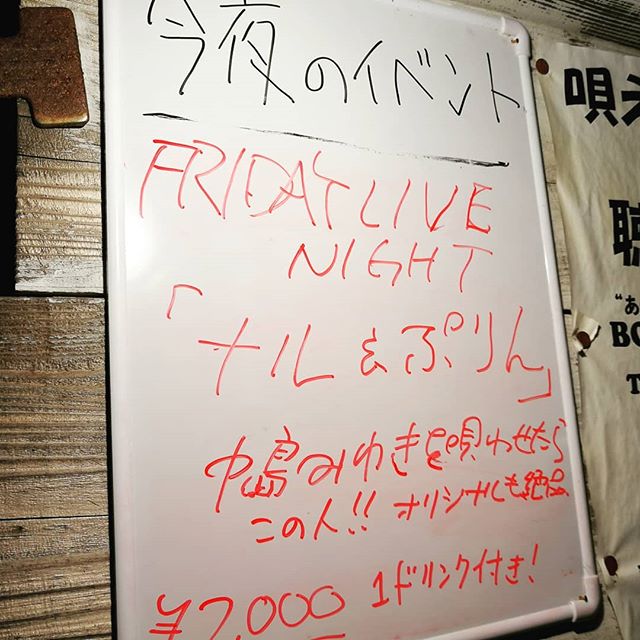 今夜のイベント
FRIDAY LIVE
NIGHT
「ナル&ぷりん」
中島みゆきを唄わせたら
この人!! オリジナルも絶品
¥2,000 1ドリンク付き!
唄え
聴
"あ
BO
T